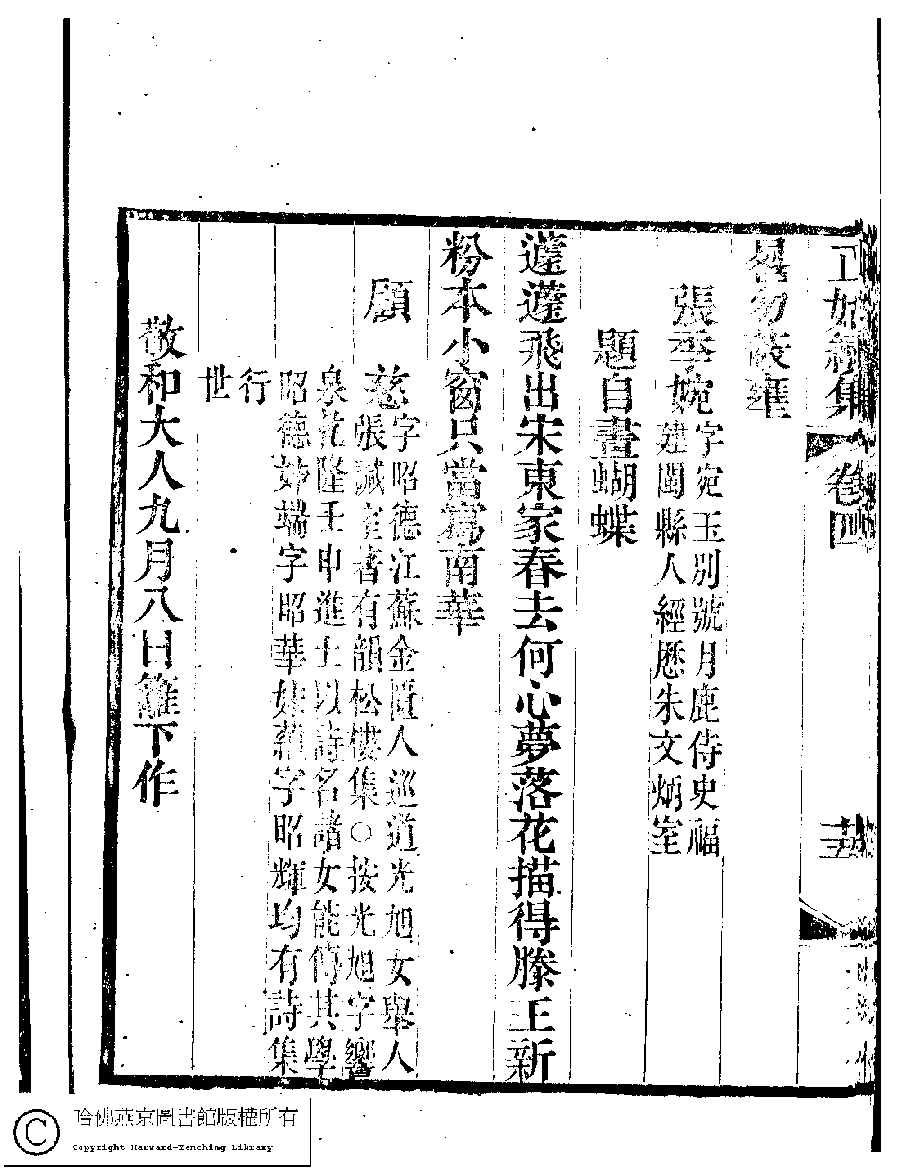 正始續集 卷四
張季婉
字宛玉別號月鹿侍史福
建閩縣人經歷朱文炳室
題自畫蝴蝶
蘧蘧飛出宋東家春去何心夢落花描得滕王新
粉本小窗只當寫南華
顧慈
字昭德江蘇金匱人巡道光旭女舉人
張諴室著有韻松樓集○按光旭字響
泉乾隆壬申進士以詩名諸女能傳其學
昭德姊端字昭華妹蘊字昭輝均有詩集
行
世
敬和大人九月八日籬下作
哈佛燕京圖書館版權所有
Copyright Harvard-Yenching Library